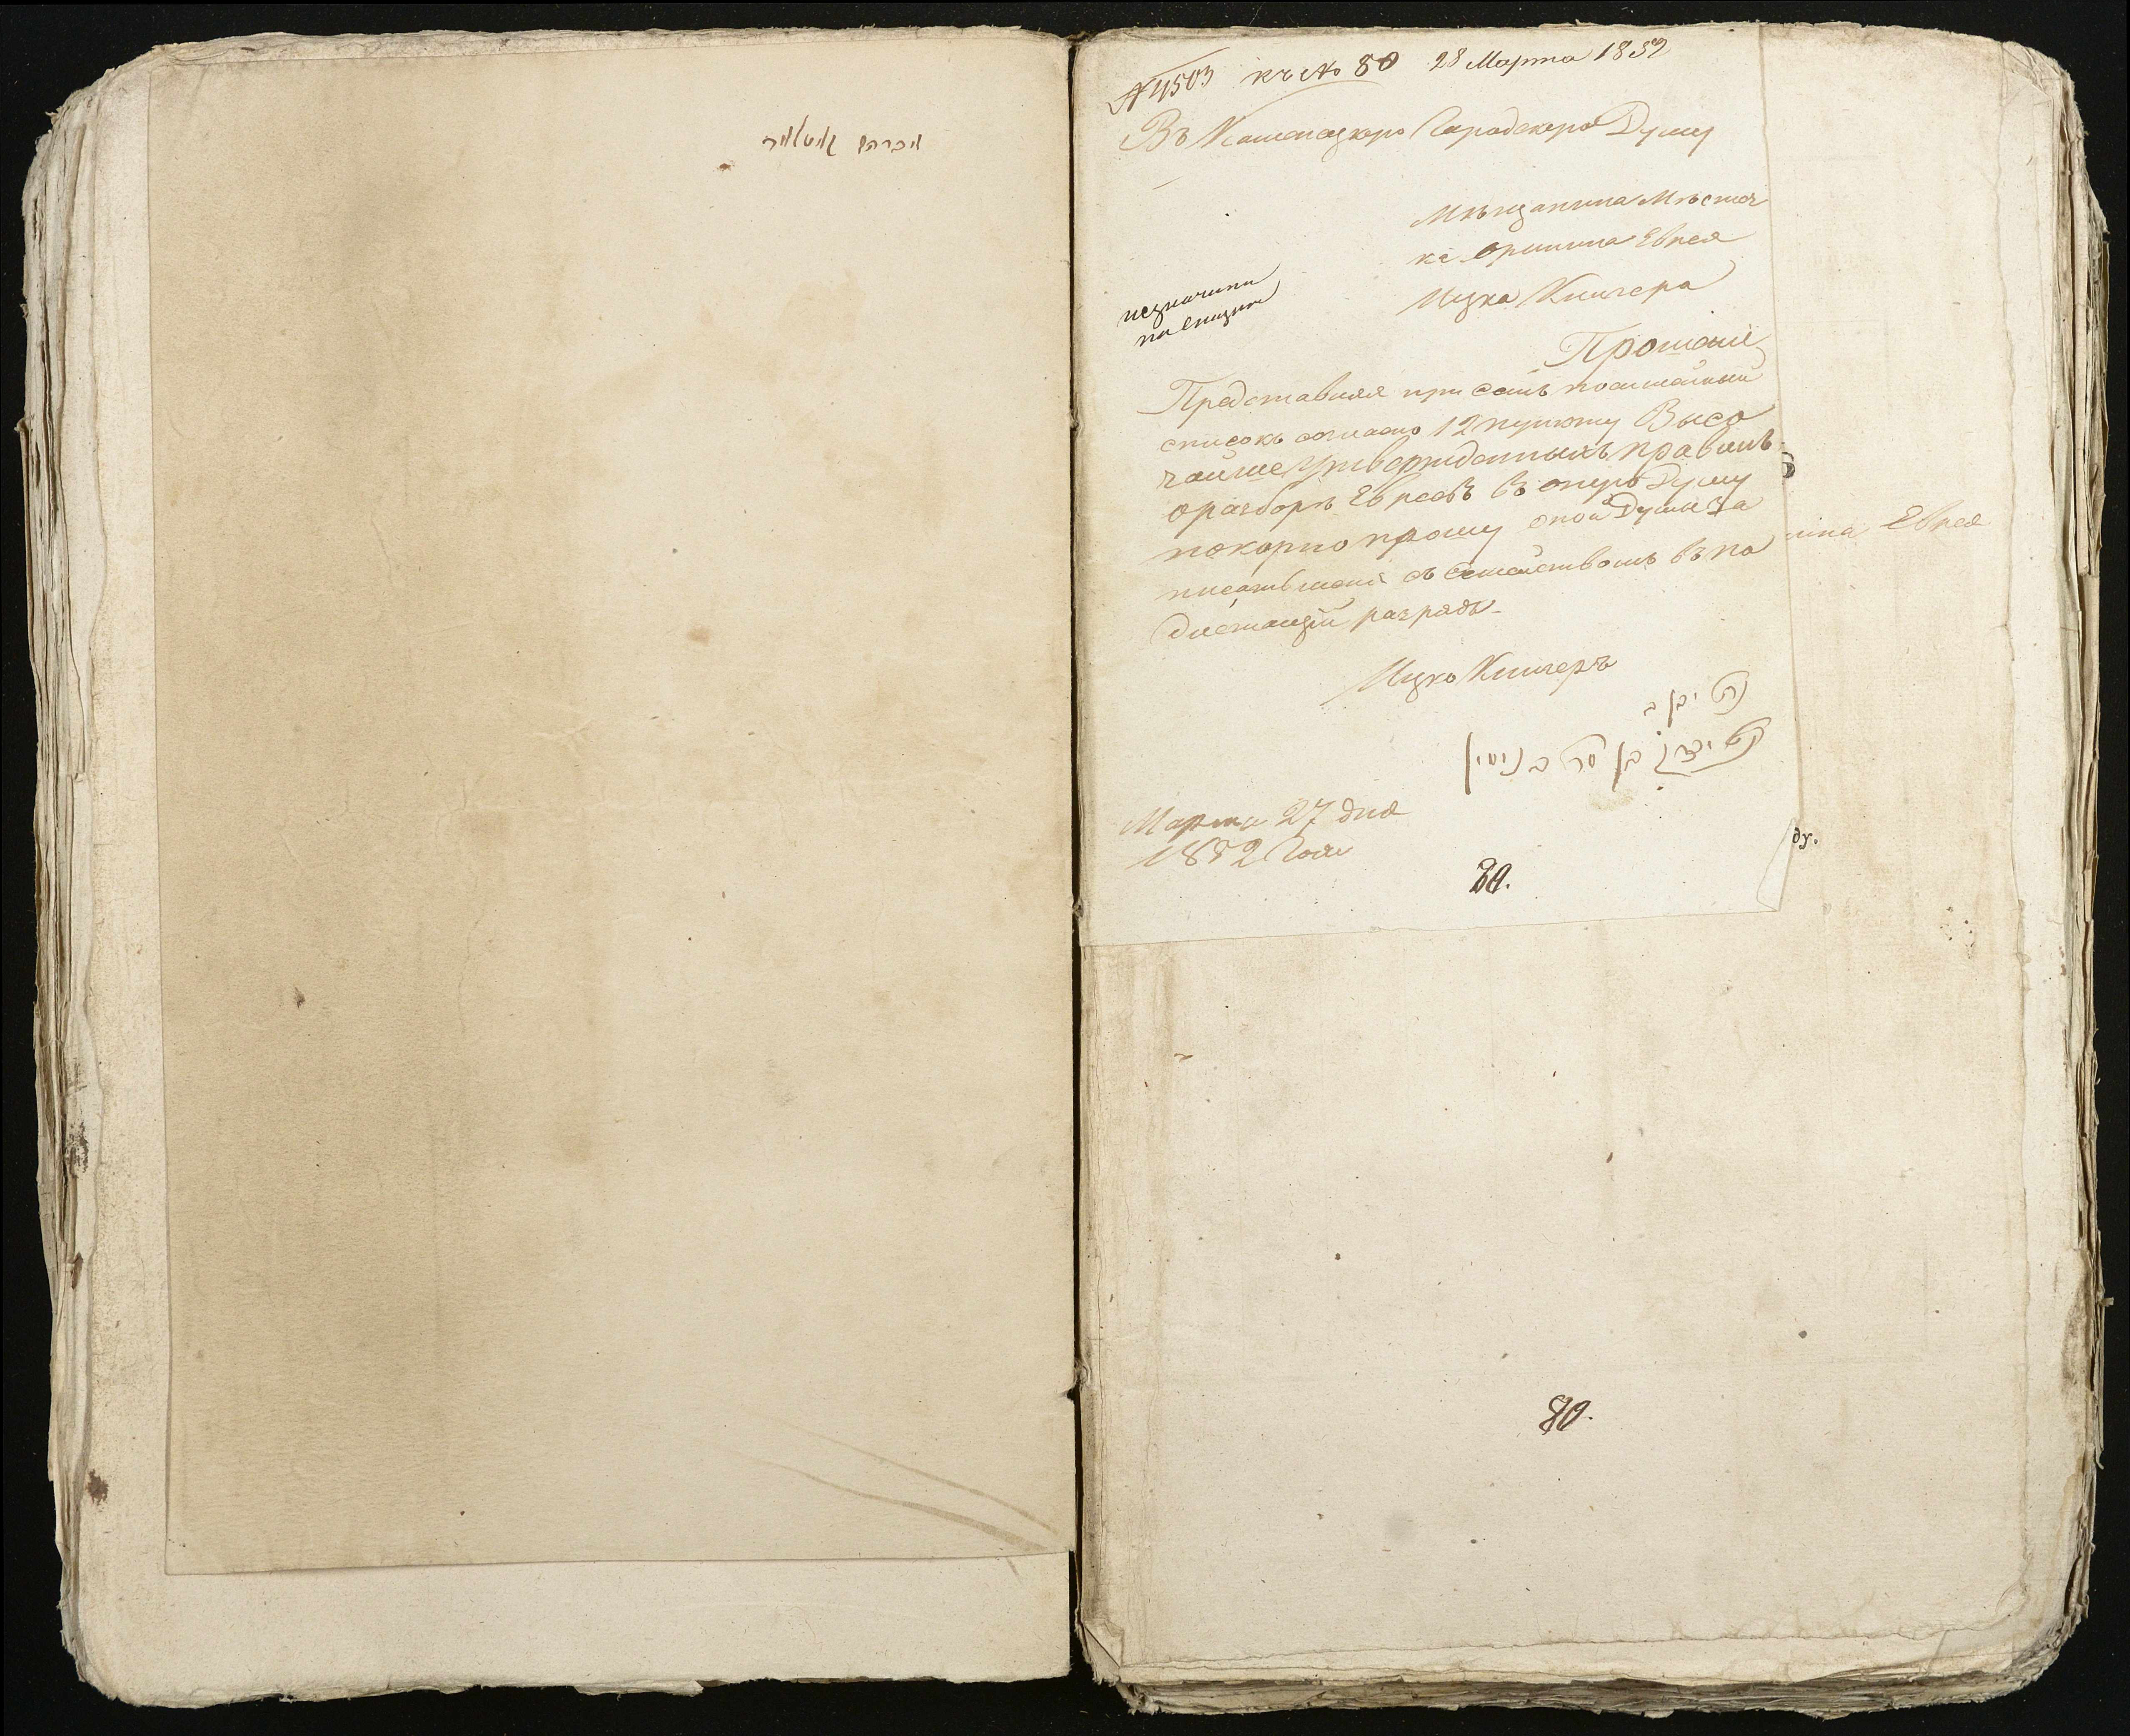 אברהם
№ 4503 къ № 80 28 Марта 1852
Въ Каменецкую Городскую Думу
Мѣщанина Мѣстеч
ка Оринина Еврея
Ицка Кишера
Прошеніе
Представляя при семъ посемейный
списокъ согласно 12 пункту Высо
чайше утвержденныхъ правилъ
о разборѣ Евреевъ въ оную Думу
покорно прошу оной Думы за
писать мене съ семействомъ въ по
длежащій разрядъ
Ицко Кишеръ
Марта 27 дня
1852 Года
30.
ина Еврея
ду.
80.